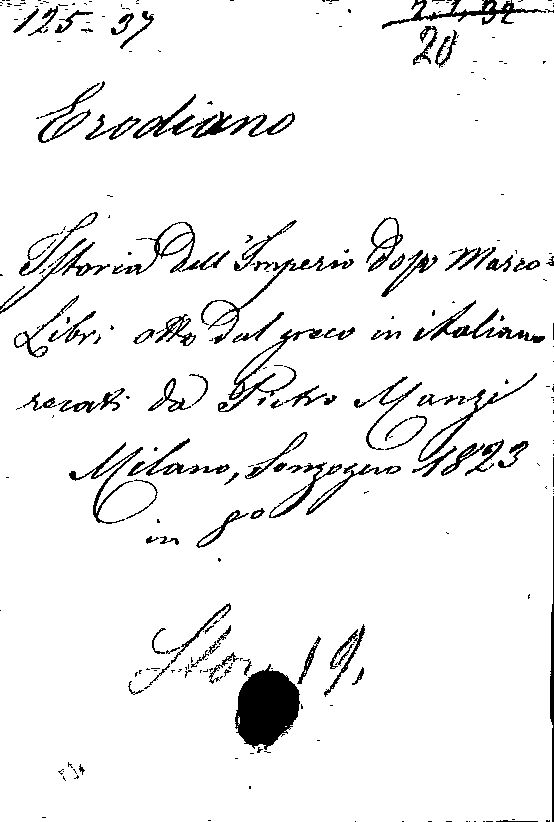 125-37
20
Erodiano
Istoria dell'Imperio dopo Marco
Libri otto dal greco in italiano
recati da Pietro Manzi
Milano, Sonzogno 1823
in 8o
Stor. 19.